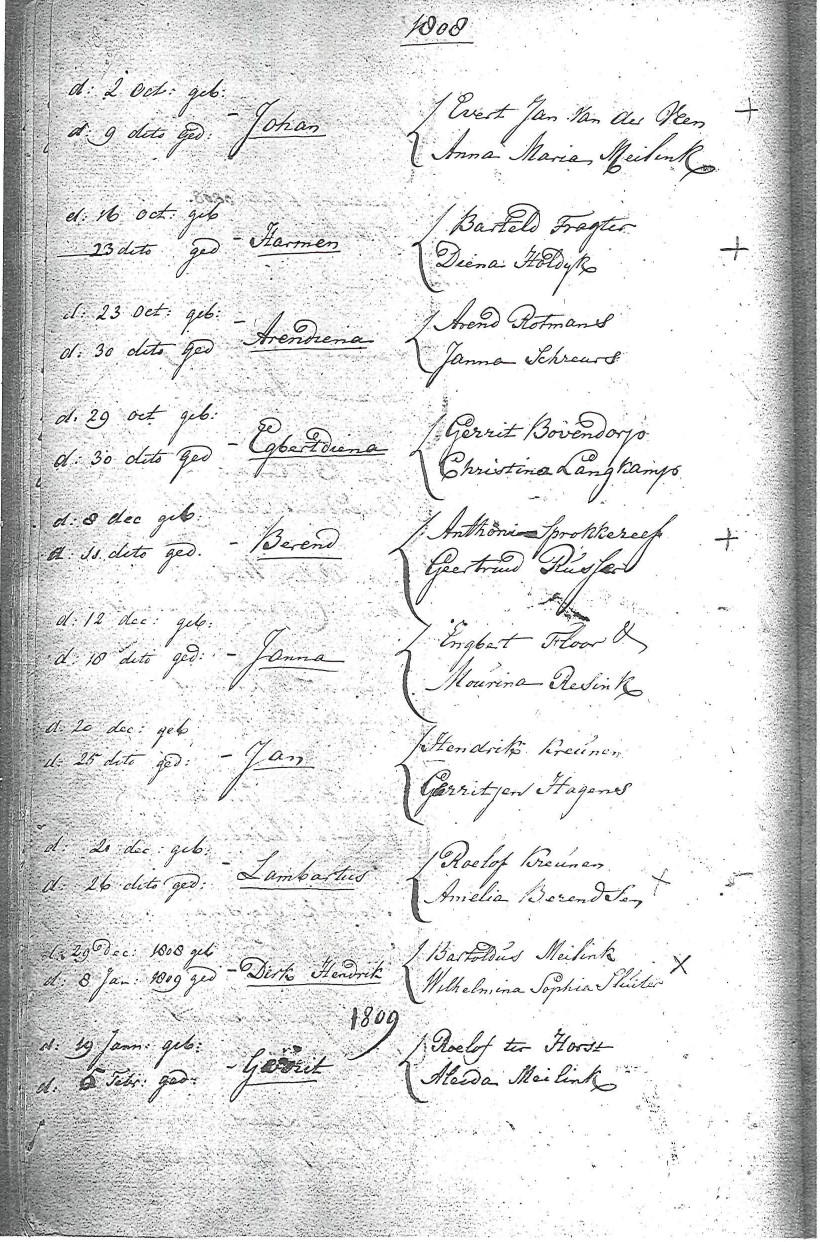 1808
d: 2 Oct: geb:
d: 9 dito ged: - Johan
Evert Jan van der Veen +
Anna Maria Meilink
d: 16 Oct: geb
23 dito ged - Harmen
Barteld Fragter
Diena Holdyk +
d: 23 Oct: geb:
d: 30 dito ged - Arendiena
Arend Rotmans
Janna Schreurs
d. 29 oct geb:
d: 30 dito ged - Egbertdiena
Gerrit Bovendorp
Christina Langkamp
d: 8 dec geb
d: 11 dito ged. - Berend
Anthoni Sprokkereef +
Geertruid
d: 12 dec: geb:
d: 18 dito ged: - Janna
Engbert Floor &
Mourina Resink
d: 20 dec: geb
d: 25 dito ged: - Jan
Hendrik Kreunen
Gerritjen Hagens
d: 20 dec: geb:
d: 26 dito ged: - Lambartus
Roelof Kreunen
Amelia Berendsen +
d: 29 Dec: 1808 geb
d: 8 Jan: 1809 ged - Dirk Hendrik
Bartoldus Meilink X
Wilhelmina Sophia Sluiter
1809
d: 19 Jann: geb:
d: 5 Febr: ged: - Gerrit
Roelof ter Horst
Aleida Meilink